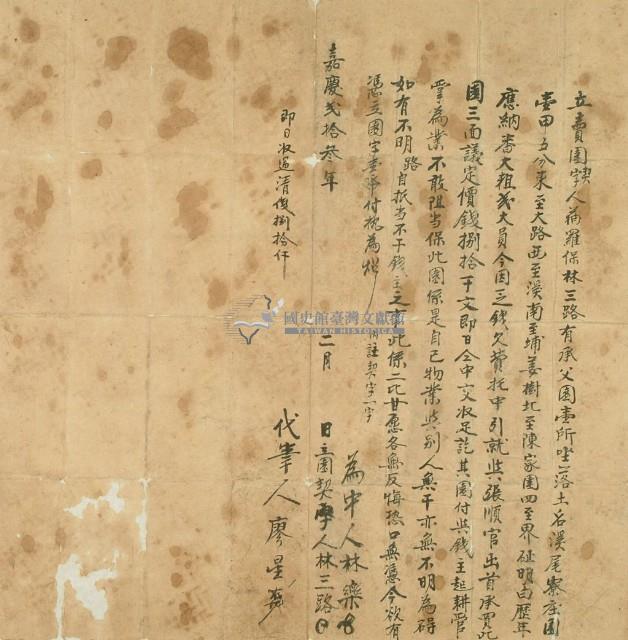 立賣園字契人蔴羅保林三路有承父園壹所坐落土名溪尾寮庄園
壹甲五分東至大路西至溪南至埔姜樹北至陳家園四至界址明白歷年
應納番大租戈大員今因乏錢欠費托中引就與張順官出首承買此
園三面議定價錢捌拾千文即日仝中交收足訖其園付與錢主起耕管
掌為業不敢阻当保此園係是自己物業與別人無干亦無不明為碍
如有不明路自抵当不干錢主之 此係二比甘愿各無反悔恐口無憑今欲有
憑立園字壹帋付執為炤
註契字一字
國史館臺灣文獻館
TAIWAN HISTORICA
即日收過清錢捌拾仟
嘉慶弍拾叁年
二月
日立園契字人林三路
為中人林樂
代筆人廖星